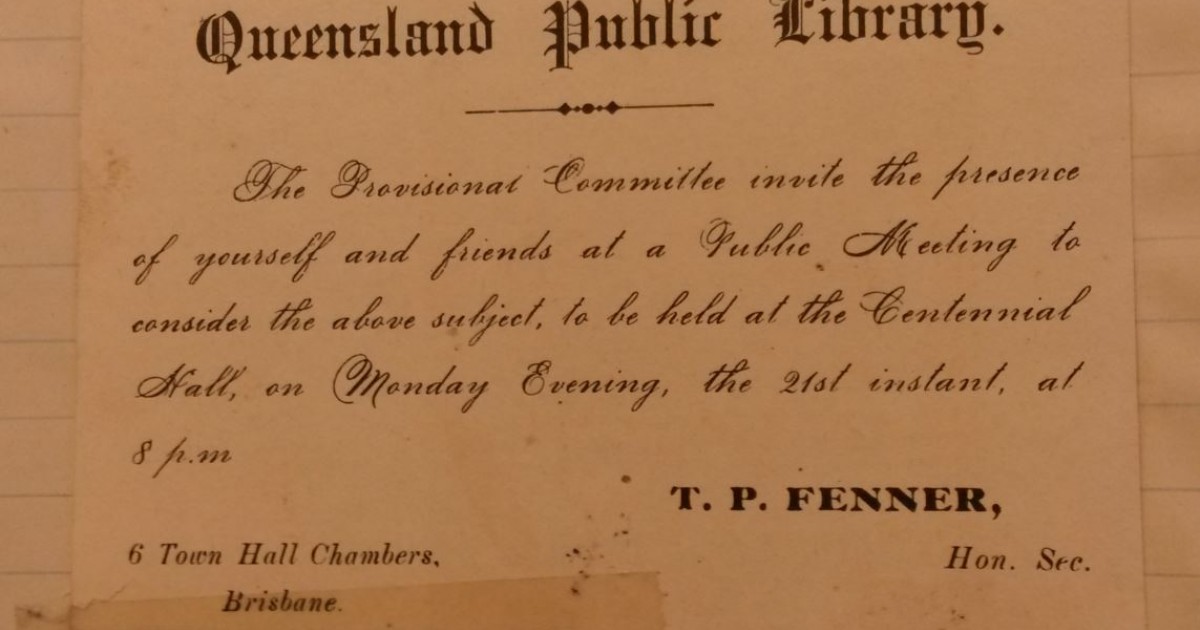 Queensland Public Library.
The Provisional Committee invite the presence
of yourself and friends at a Public Meeting to
consider the above subject, to be held at the Centennial
Hall, on Monday Evening, the 21st instant, at
8 p.m
T. P. FENNER,
6 Town Hall Chambers, Hon. Sec.
Brisbane.